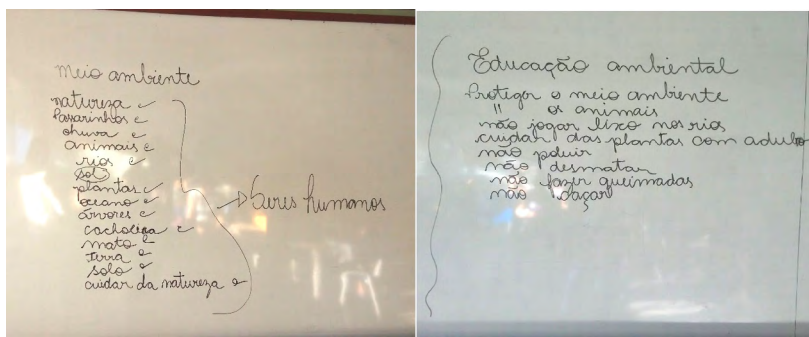 meio ambiente
natureza
passarinhos
chuva
animais
rios
sol
plantas
oceano
árvores
cachoeira
mato
terra
solo
cuidar da natureza
Seres humanos
Educação ambiental
Proteger o meio ambiente
" os animais
não jogar lixo nos rios
cuidar das plantas com adubo
não poluir
não desmatar
não fazer queimadas
não caçar